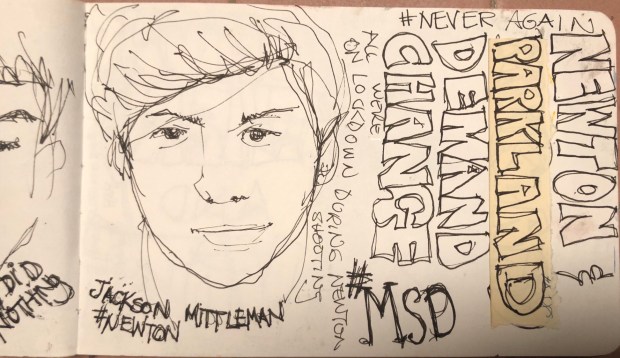 #NEVER AGAIN
NEWTON &
PARKLAND
DEMAND
CHANGE
ALL WERE
ON LOCKDOWN DURING NEWTON
SHOOTING
#MSD
JACKSON MITTLEMAN
#NEWTON
DID
NOTHING